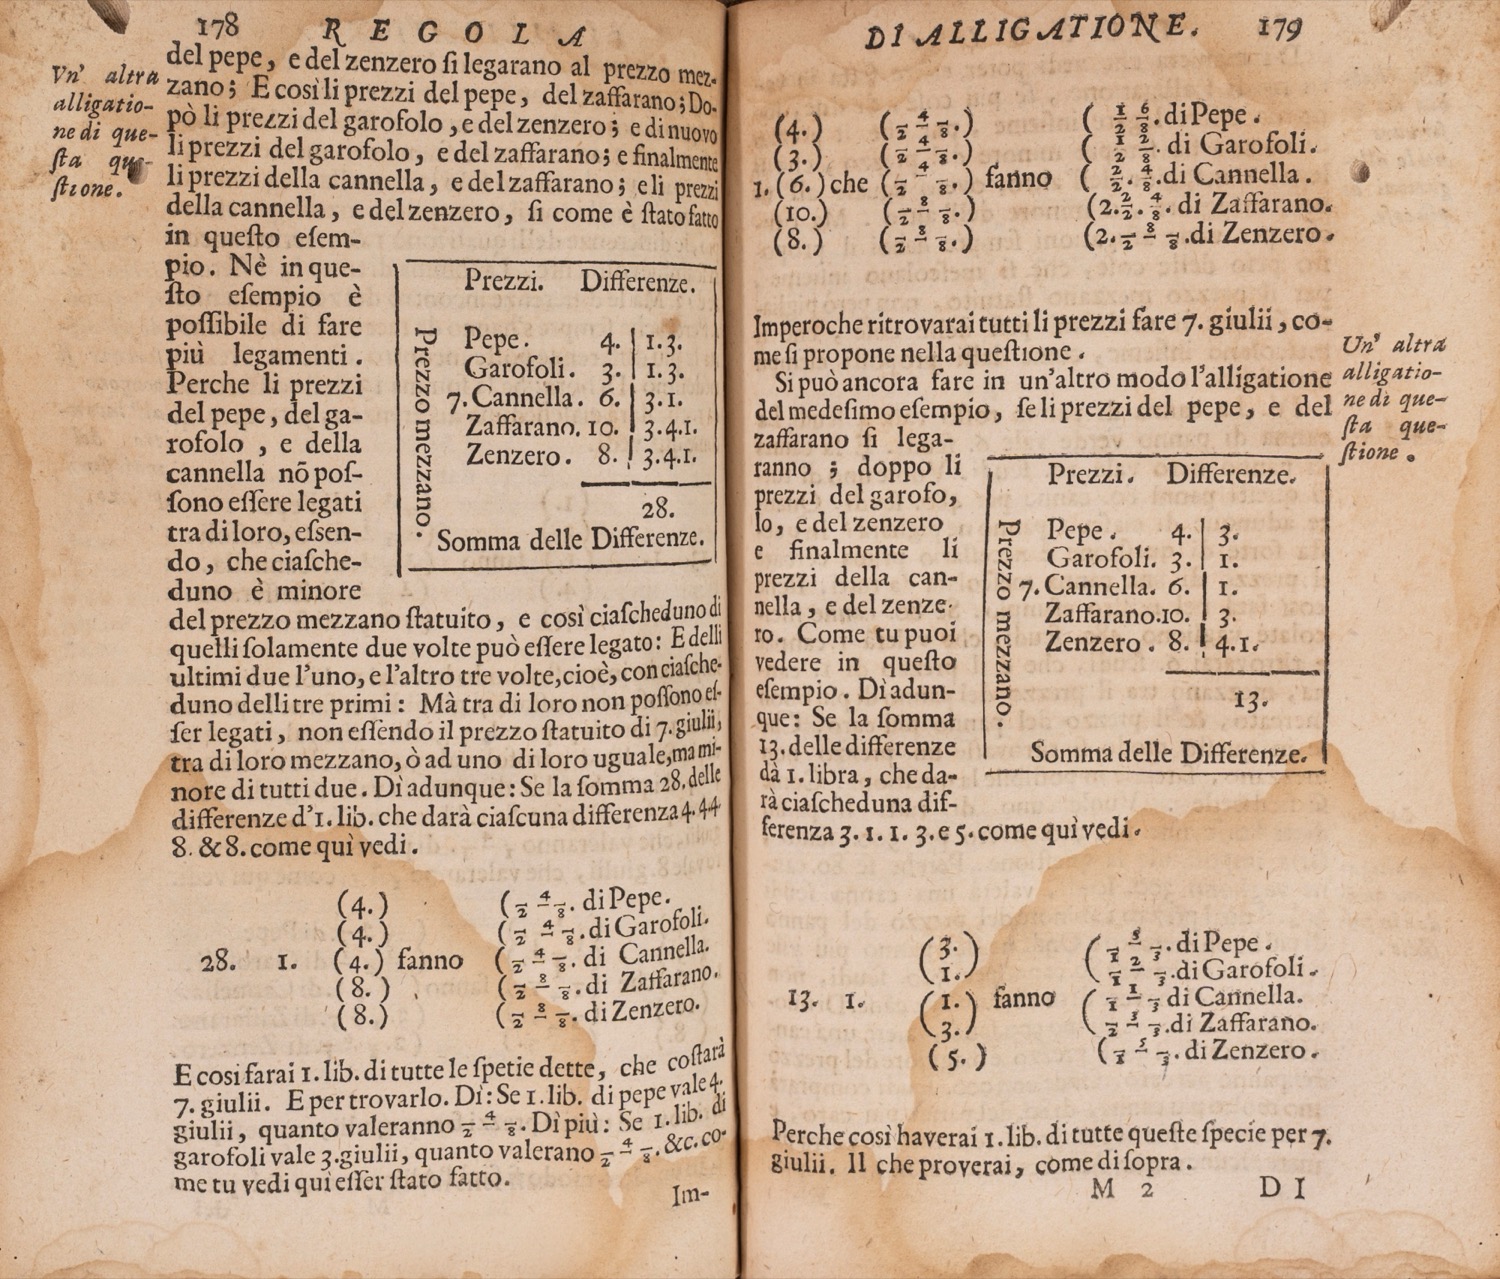 178 REGOLA
Vn' altra
alligatio-
ne di que-
sta que-
stione.
del pepe, e del zenzero ſi legarano al prezzo mez-
zano; E così li prezzi del pepe, del zaffarano; Do-
pò li prezzi del garofolo, e del zenzero; e di nuovo
li prezzi del garofolo, e del zaffarano; e finalmente
li prezzi della cannella, e del zaffarano; e li prezzi
della cannella, e del zenzero, ſi come è ſtato fatto
in queſto eſem-
pio. Nè in que-
ſto eſempio è
poſſibile di fare
più legamenti.
Perche li prezzi
del pepe, del ga-
rofolo, e della
cannella nō poſ-
ſono eſſere legati
tra di loro, eſſen-
do, che ciaſche-
duno è minore
Prezzo mezzano.
Prezzi. Differenze.
Pepe. 4. 1.3.
Garofoli. 3. 1.3.
7. Cannella. 6. 3.1.
Zaffarano. 10. 3.4.1.
Zenzero. 8. 3.4.1.
28.
Somma delle Differenze.
del prezzo mezzano ſtatuito, e così ciaſcheduno di
quelli ſolamente due volte può eſſere legato: E delli
ultimi due l'uno, e l'altro tre volte, cioè, con ciaſche-
duno delli tre primi: Mà tra di loro non poſſono eſ-
ſer legati, non eſſendo il prezzo ſtatuito di 7. giulii,
tra di loro mezzano, ò ad uno di loro uguale, ma mi-
nore di tutti due. Dì adunque: Se la ſomma 28. delle
differenze d'1. lib. che darà ciaſcuna differenza 4. 4 4
8. & 8. come quì vedi.
(4.) (2 4/8. di Pepe.
(4.) (2 4/8. di Garofoli.
28. 1. (4.) fanno (2 4/8. di Cannella.
(8.) (2 8/8. di Zaffarano.
(8.) (2 8/8. di Zenzero.
E cosi farai 1. lib. di tutte le ſpetie dette, che coſtarà
7. giulii. E per trovarlo. Dì: Se 1. lib. di pepe vale 4.
giulii, quanto valeranno 2 4/8. Dì più: Se 1. lib. di
garofoli vale 3. giulii, quanto valerano 2 4/8. &c. co-
me tu vedi qui eſſer ſtato fatto.
Im-
DI ALLIGATIONE. 179
(4.) (2 4/8.) (1/2 6/8. di Pepe.
(3.) (2 4/8.) (1/2 2/8. di Garofoli.
1. (6.) che (2 4/8.) fanno (2/2. 4/8. di Cannella.
(10.) (2 8/8.) (2. 2/2. 4/8. di Zaffarano.
(8.) (2 8/8.) (2. 2 8/8. di Zenzero.
Imperoche ritrovarai tutti li prezzi fare 7. giulii, co-
me ſi propone nella queſtione.
Un' altra
alligatio-
ne di que-
ſta que-
ſtione.
Si può ancora fare in un'altro modo l'alligatione
del medeſimo eſempio, ſe li prezzi del pepe, e del
zaffarano ſi lega-
ranno; doppo li
prezzi del garofo,
lo, e del zenzero
e finalmente li
prezzi della can-
nella, e del zenze-
ro. Come tu puoi
vedere in queſto
eſempio. Dì adun-
que: Se la ſomma
13. delle differenze
dà 1. libra, che da-
rà ciaſcheduna dif-
ferenza 3. 1. 1. 3. e 5. come quì vedi.
Prezzo mezzano.
Prezzi. Differenze.
Pepe. 4. 3.
Garofoli. 3. 1.
7. Cannella. 6. 1.
Zaffarano. 10. 3.
Zenzero. 8. 4.1.
13.
Somma delle Differenze.
(3.) (1 3/3. di Pepe.
(1.) (1 2/3. di Garofoli.
13. 1. (1.) fanno (1 1/3 di Cannella.
(3.) (2 3/3. di Zaffarano.
(5.) (1 5/3. di Zenzero.
Perche così haverai 1. lib. di tutte queſte ſpecie per 7.
giulii. Il che proverai, come di ſopra.
M 2 DI